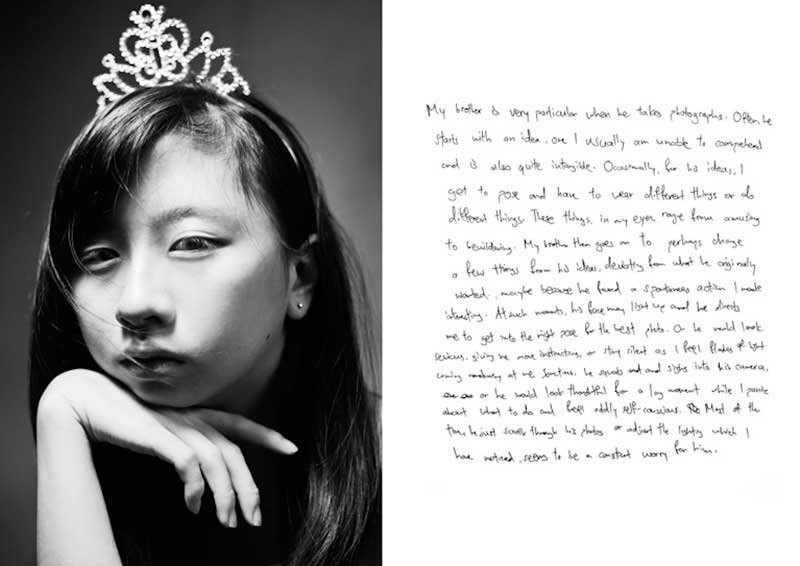 My brother is very particular when he takes photographs. Often, he
starts with an idea, one I usually am unable to comprehend
and is also quite intangible. Occasionally, for his ideas, I
get to pose and have to wear different things or do
different things. These things, in my eyes, range from amusing
to bewildering. My brother then goes on to perhaps change
a few things from his ideas, deviating from what he originally
wanted, maybe because he found a spontaneous action I made
interesting. At such moments, his face may light up and he directs
me to get into the right pose for the best photo. Or he would look
serious, giving me more instructions, or stay silent as I feel flashes of light
coming at me. Sometimes, he squats and and sighs into his camera,
or he would look thoughtful for a long moment while I
about what to do and feel oddly self-conscious. Most of the
time he just scrolls through his photos or adjust the lighting which I
have noticed, seems to be a constant worry for him.